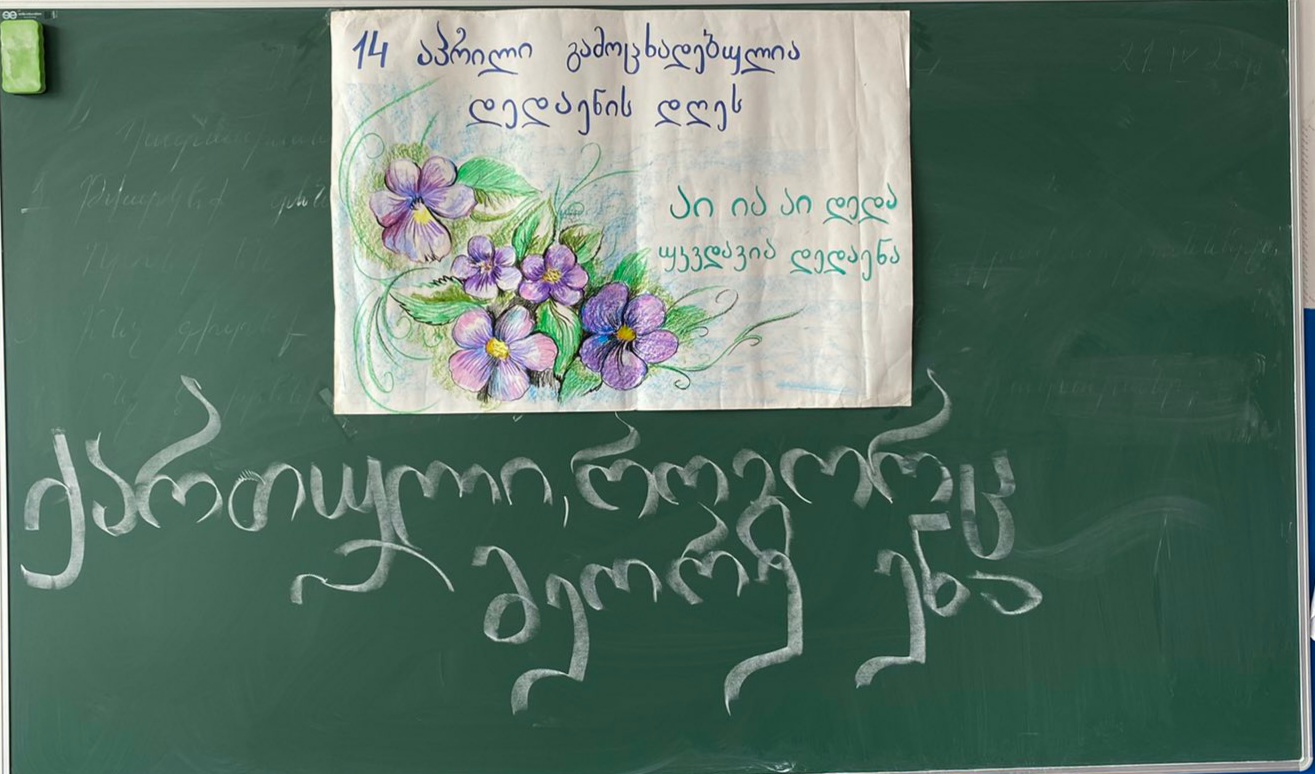 14 აპრილი გამოცხადებულია
დედაენის დღეს
აი ია აი დედა
უკვდავია დედაენა
ქართული, როგორც
მეორე ენა